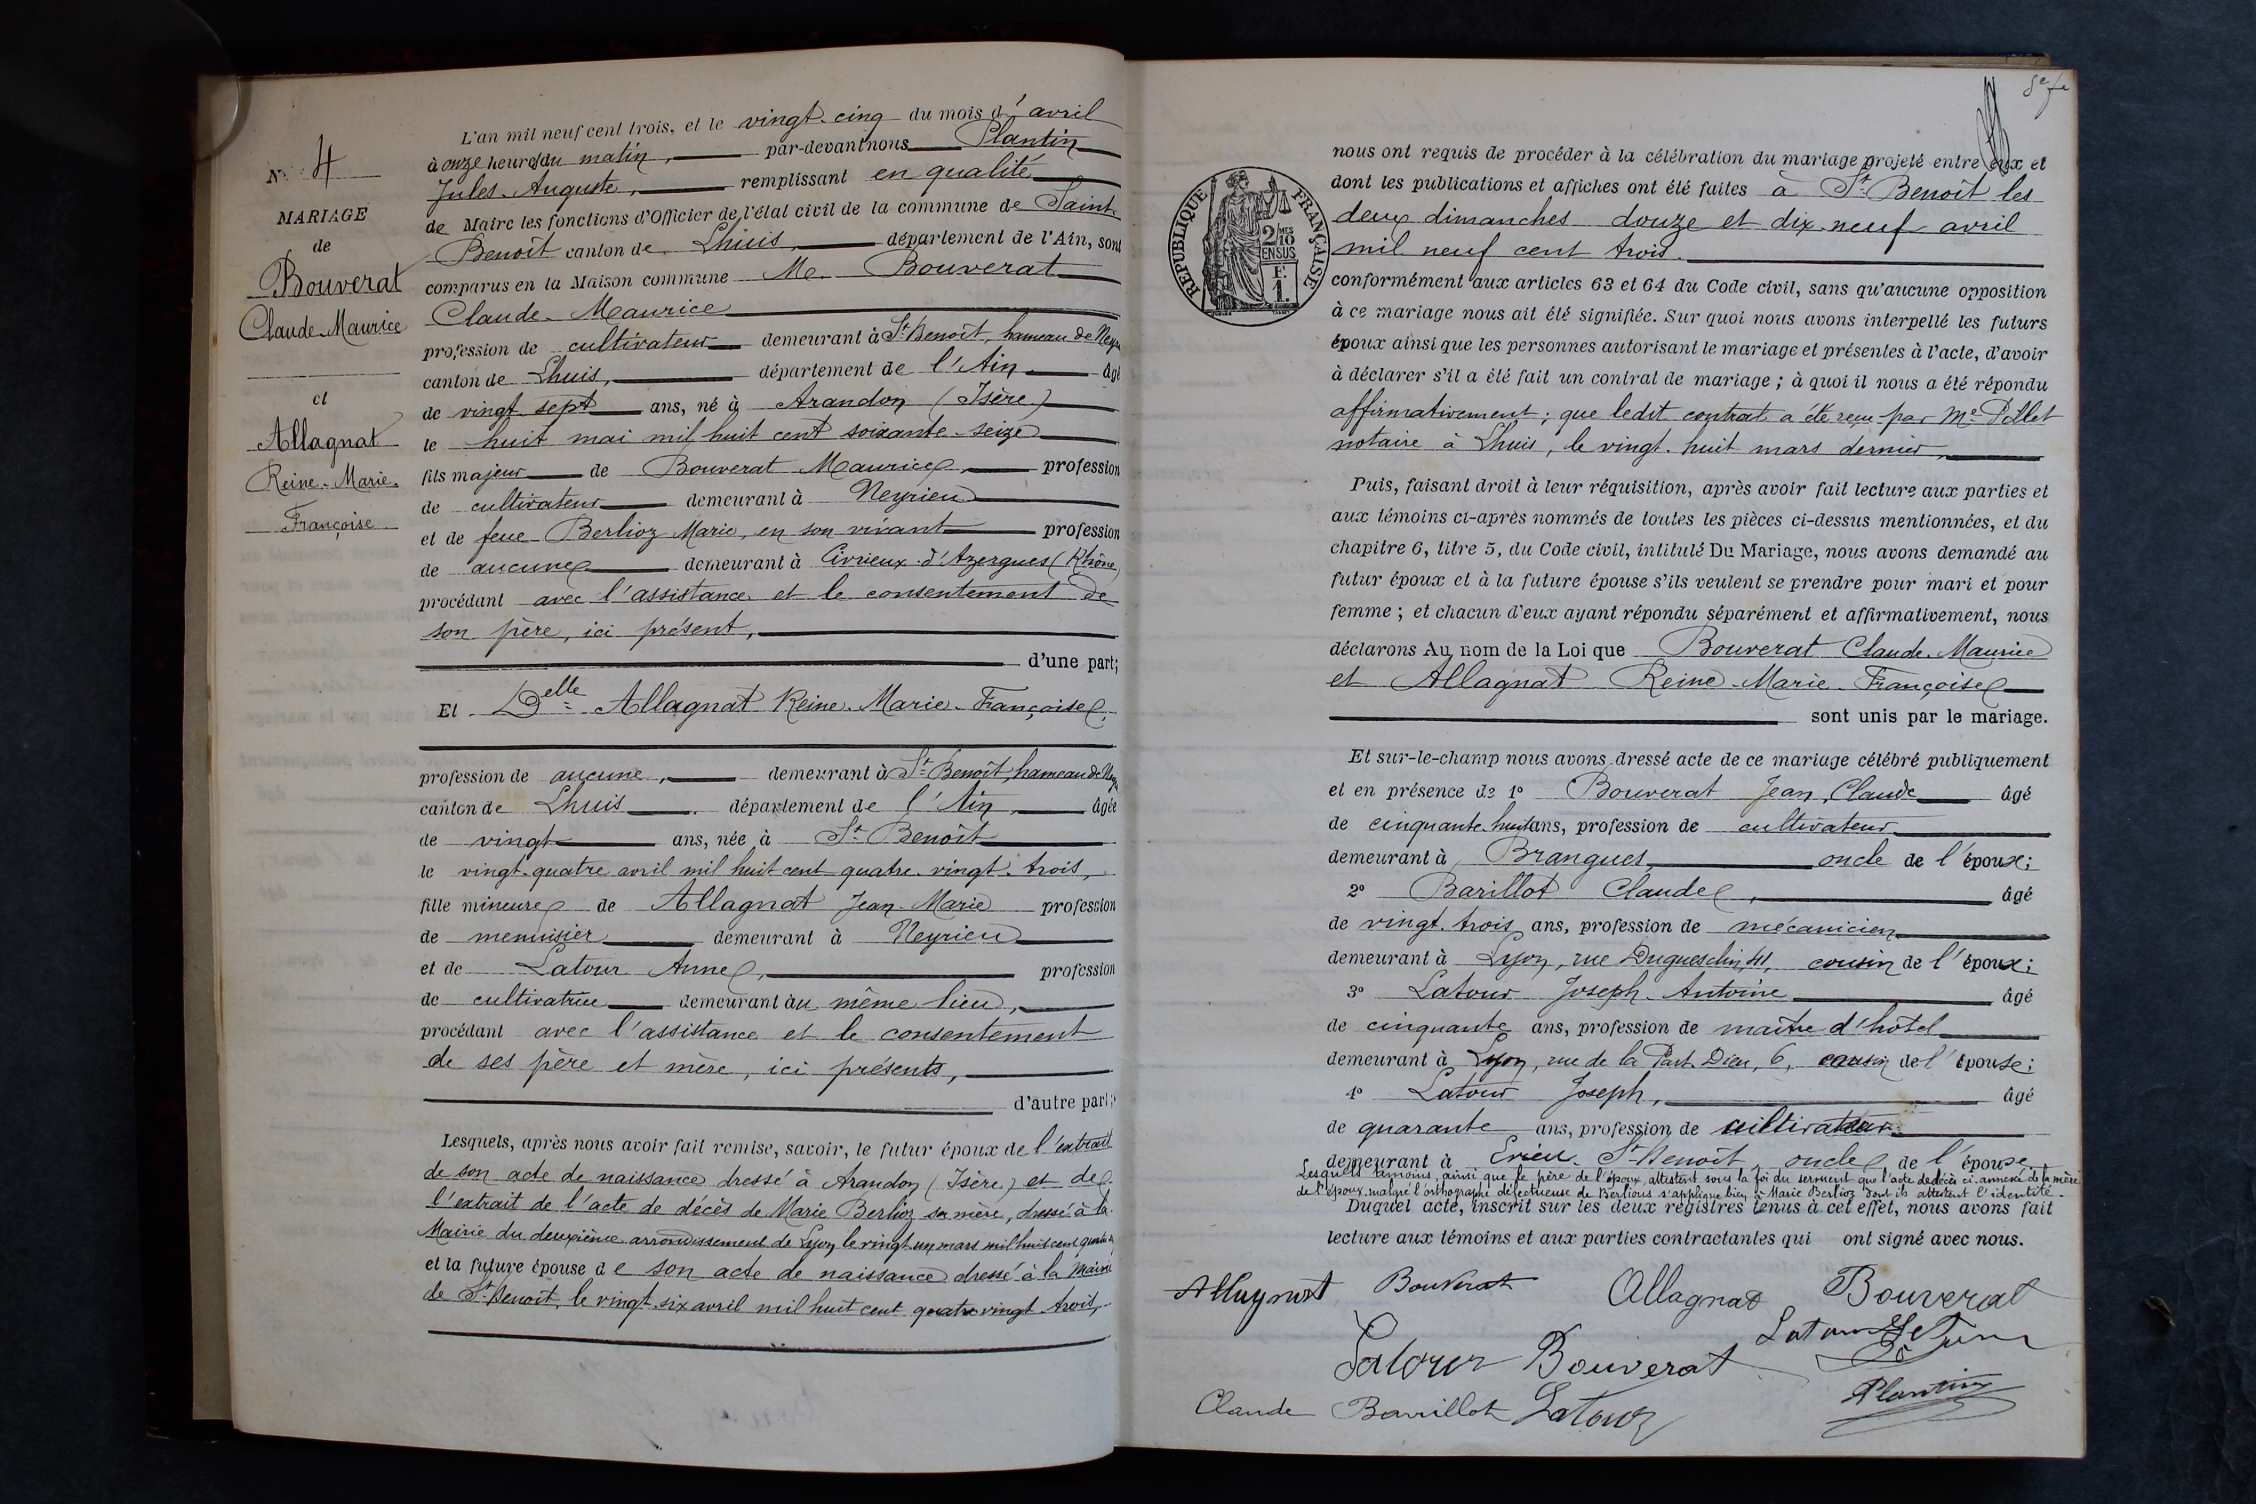 N° 4
MARIAGE
de
Bouverat
Claude-Maurice
et
Allagnat
Reine-Marie-
Françoise
L'an mil neuf cent trois, et le vingt-cinq du mois d'avril
à onze heures du matin, par-devant nous Plantin
Jules-Auguste, remplissant en qualité
de Maire les fonctions d'Officier de l'état civil de la commune de Saint-
Benoît canton de Lhuis, département de l'Ain, sont
comparus en la Maison commune Mr. Bouverat
Claude-Maurice
profession de cultivateur demeurant à St Benoît, hameau de
canton de Lhuis, département de l'Ain âgé
de vingt-sept ans, né à Arandon (Isère)
le huit mai mil huit cent soixante-seize
fils majeur de Bouverat Maurice, profession
de cultivateur demeurant à Neyrieu
et de feue Berlioz Marie, en son vivant profession
de aucune demeurant à Civrieux-d'Azergues (Rhône)
procédant avec l'assistance et le consentement de
son père, ici présent,
d'une part;
Et Delle Allagnat Reine-Marie-Françoise,
profession de aucune, demeurant à St Benoît, hameau de
canton de Lhuis département de l'Ain, âgée
de vingt ans, née à St Benoît
le vingt-quatre avril mil huit cent quatre-vingt-trois,
fille mineure de Allagnat Jean-Marie profession
de menuisier demeurant à Neyrieu
et de Latour Anne, profession
de cultivatrice demeurant au même lieu,
procédant avec l'assistance et le consentement
de ses père et mère, ici présents,
d'autre part;
Lesquels, après nous avoir fait remise, savoir, le futur époux de l'extrait
de son acte de naissance dressé à Arandon (Isère) et de
l'extrait de l'acte de décès de Marie Berlioz sa mère, dressé à la
Mairie du deuxième arrondissement de Lyon le vingt-un mars mil huit cent
et la future épouse de son acte de naissance dressé à la Mairie
de St Benoît, le vingt-six avril mil huit cent quatre vingt trois,
RÉPUBLIQUE FRANÇAISE
2/10 MES
EN SUS
F.
1.
nous ont requis de procéder à la célébration du mariage projeté entre eux et
dont les publications et affiches ont été faites à St Benoît les
deux dimanches douze et dix-neuf avril
mil neuf cent trois.
conformément aux articles 63 et 64 du Code civil, sans qu'aucune opposition
à ce mariage nous ait été signifiée. Sur quoi nous avons interpellé les futurs
époux ainsi que les personnes autorisant le mariage et présentes à l'acte, d'avoir
à déclarer s'il a été fait un contrat de mariage; à quoi il nous a été répondu
affirmativement; que ledit contrat a été reçu par Me Pillet
notaire à Lhuis, le vingt-huit mars dernier,
Puis, faisant droit à leur réquisition, après avoir fait lecture aux parties et
aux témoins ci-après nommés de toutes les pièces ci-dessus mentionnées, et du
chapitre 6, titre 5, du Code civil, intitulé Du Mariage, nous avons demandé au
futur époux et à la future épouse s'ils veulent se prendre pour mari et pour
femme; et chacun d'eux ayant répondu séparément et affirmativement, nous
déclarons Au nom de la Loi que Bouverat Claude-Maurice
et Allagnat Reine-Marie-Françoise
sont unis par le mariage.
Et sur-le-champ nous avons dressé acte de ce mariage célébré publiquement
et en présence de 1° Bouverat Jean-Claude âgé
de cinquante-huit ans, profession de cultivateur
demeurant à Brangues, oncle de l'époux;
2° Barillot Claude, âgé
de vingt-trois ans, profession de mécanicien
demeurant à Lyon, rue Duguesclin, 41, cousin de l'époux;
3° Latour Joseph-Antoine âgé
de cinquante ans, profession de maître d'hôtel
demeurant à Lyon, rue de la Part-Dieu, 6, cousin de l'épouse;
4° Latour Joseph, âgé
de quarante ans, profession de cultivateur
demeurant à St-Benoît, oncle de l'épouse
Lesquels témoins, ainsi que le père de l'époux, attestent sous la foi du serment que l'acte de décès ci-annexé de la mère
de l'époux, malgré l'orthographe défectueuse de Berlious s'applique bien à Marie Berlioz dont ils attestent l'identité.
Duquel acte, inscrit sur les deux registres tenus à cet effet, nous avons fait
lecture aux témoins et aux parties contractantes qui ont signé avec nous.
Allagnat Bouverat Allagnat Bouverat
Latour
Latour Bouverat
Plantin
Claude Barillot Latour